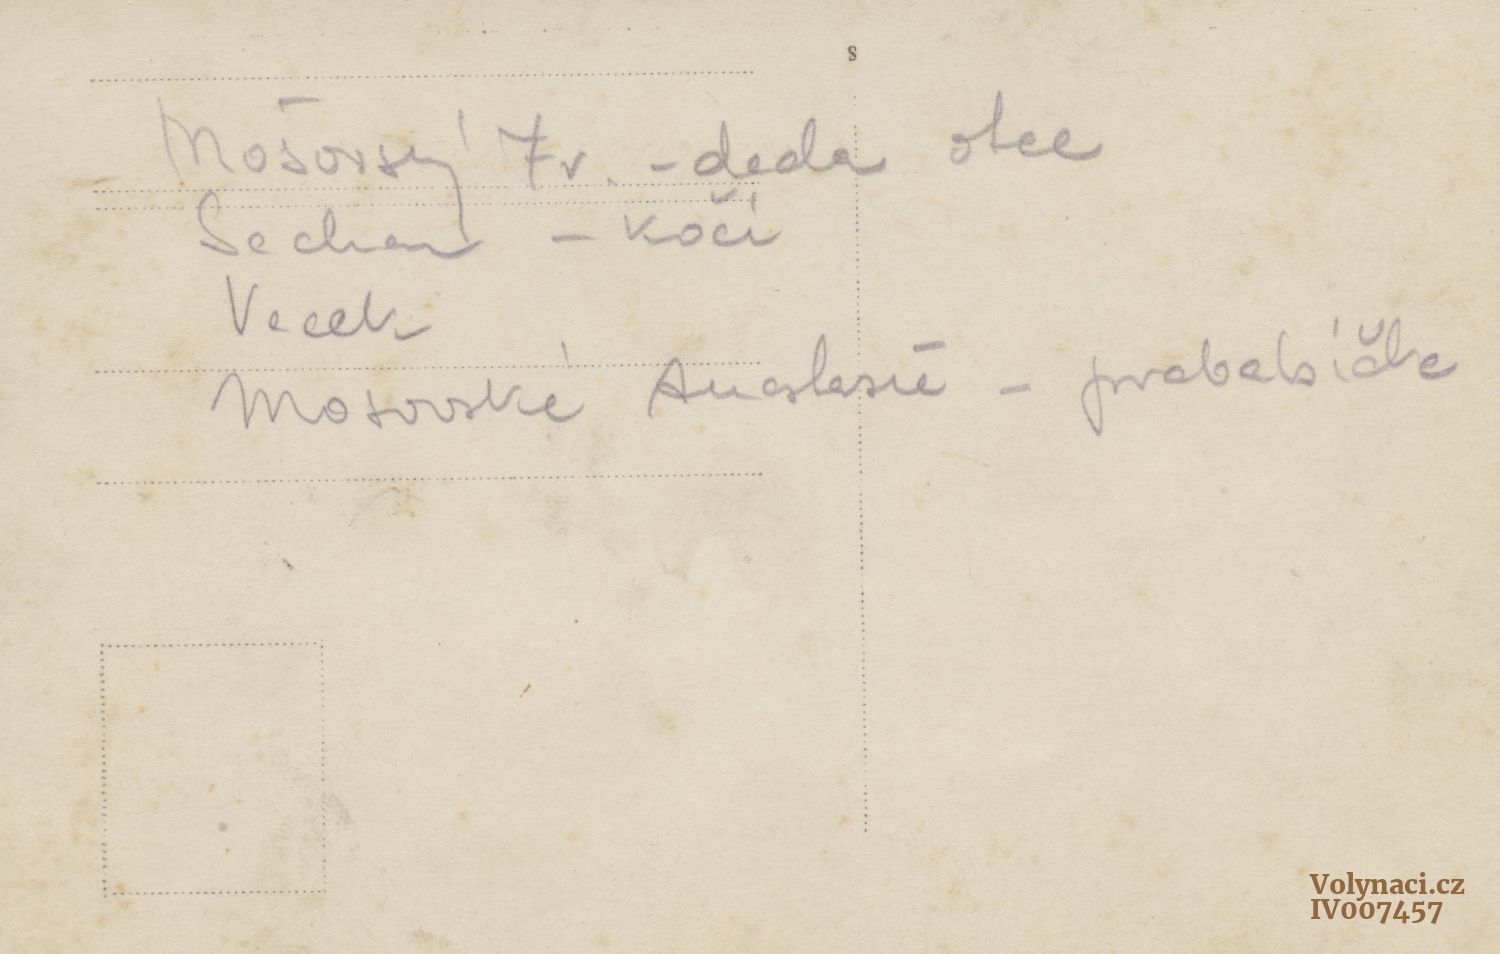 s
Mošovský Fr. - deda otce
Sechan - kočí
Vacek
Mošovská Anastasie - prababička
Volynaci.cz
IV007457